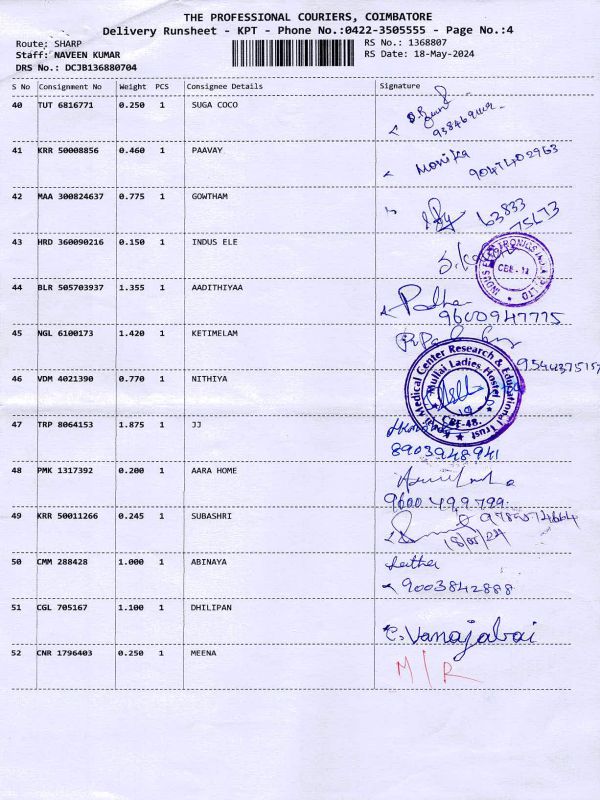 THE PROFESSIONAL COURIERS, COIMBATORE
Delivery Runsheet - KPT - Phone No.:0422-3505555 - Page No.:4
Route: SHARP RS No.: 1368807
Staff: NAVEEN KUMAR RS Date: 18-May-2024
DRS No.: DCJB136880704
S No Consignment No Weight PCS Consignee Details Signature
40 TUT 6816771 0.250 1 SUGA COCO
41 KRR 50008856 0.460 1 PAAVAY Monika 9047402963
42 MAA 300824637 0.775 1 GOWTHAM 63833
75173
43 HRD 360090216 0.150 1 INDUS ELE
INDUS ELECTRONICS INDIA (P) LTD
CBE-14
44 BLR 505703937 1.355 1 AADITHIYAA Padha
9600947775
45 NGL 6100173 1.420 1 KETIMELAM
46 VDM 4021390 0.770 1 NITHIYA
Kovai Medical Center Research & Educational Trust
Mullai Ladies Hostel
CBE-48.
47 TRP 8064153 1.875 1 JJ
8903948941
48 PMK 1317392 0.200 1 AARA HOME
9600499799
49 KRR 50011266 0.245 1 SUBASHRI
18/05/24
50 CMM 288428 1.000 1 ABINAYA
9003842888
51 CGL 705167 1.100 1 DHILIPAN C. Vanajabai
52 CNR 1796403 0.250 1 MEENA M/R